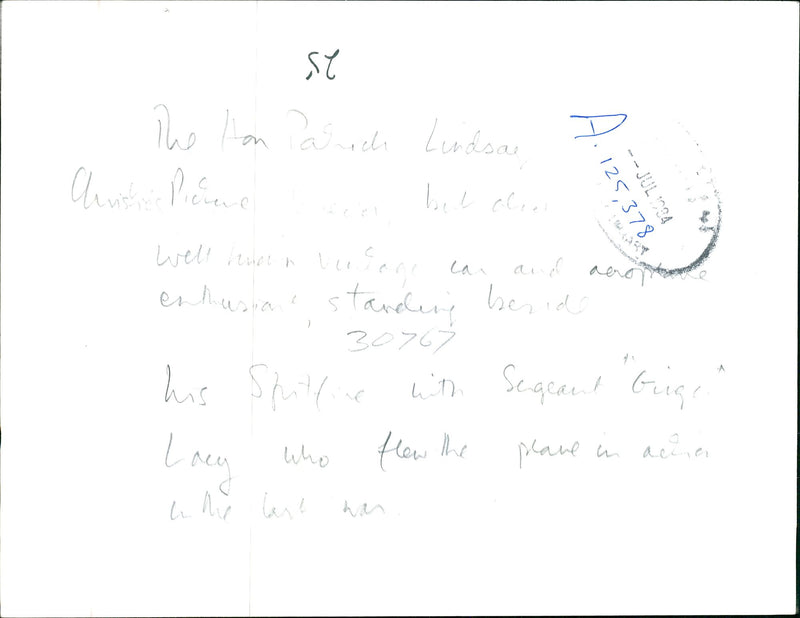 The Hon Patrick Lindsay,
Christie's Picture but also
well known vintage car and aeroplane
enthusiast, standing beside
30767
his Spitfire with Sergeant "Ginger"
Lacey who flew the plane in action
in the last war.
A. 125,378
-- JUL 1984